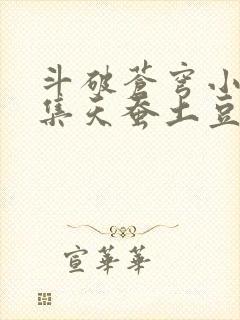 斗破苍穹小
集天蚕土豆
宣華華